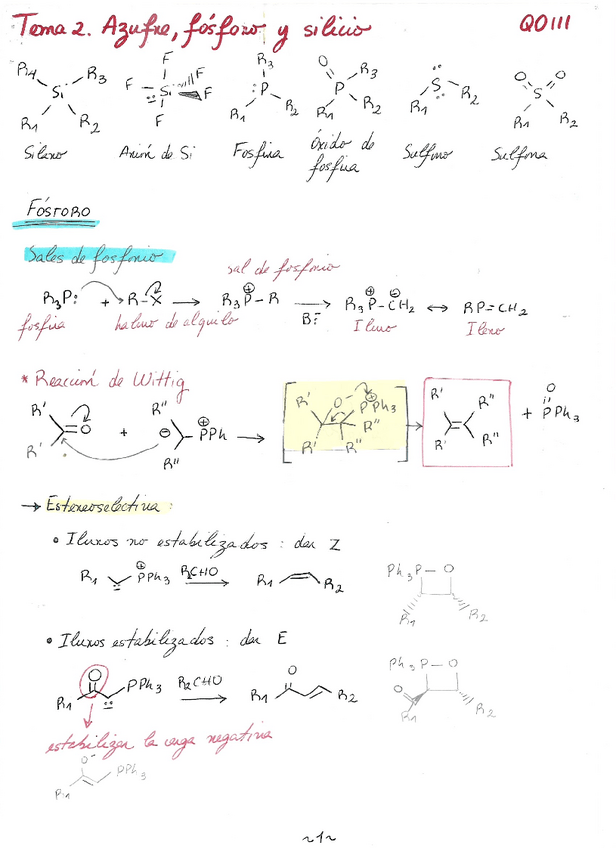 Tema 2. Azufre, fósforo y silicio QOIII
R4 Si R3 R1 R2
F F Si F F F
R3 :P R1 R2
O P R3 R1 R2
S R1 R2
O O S R1 R2
Silano Anión de Si Fosfina óxido de fosfina Sulfuro Sulfona
FÓSFORO
Sales de fosfonio:
sal de fosfonio
R3P: + R-X → R3P⊕-R → B:⁻ R3P⊕-CH2⊖ ↔ RP=CH2
fosfina haluro de alquilo Iluro Ileno
* Reacción de Wittig
R' R' =O + ⊖ R'' R'' ⊕PPh → [R' R' O ⊕PPh3 R'' R''] → R' R' R'' R'' + O PPh3
→ Estereoselectiva:
• Iluros no estabilizados: dan Z
R1 ⊕PPh3 R2CHO → R1 R2
Ph3P-O R1 R2
• Iluros estabilizados: dan E
R1 O PPh3 R2CHO → R1 O R2
Ph3P-O O R1 R2
estabilizan la carga negativa
O⁻ R1 PPh3
~1~